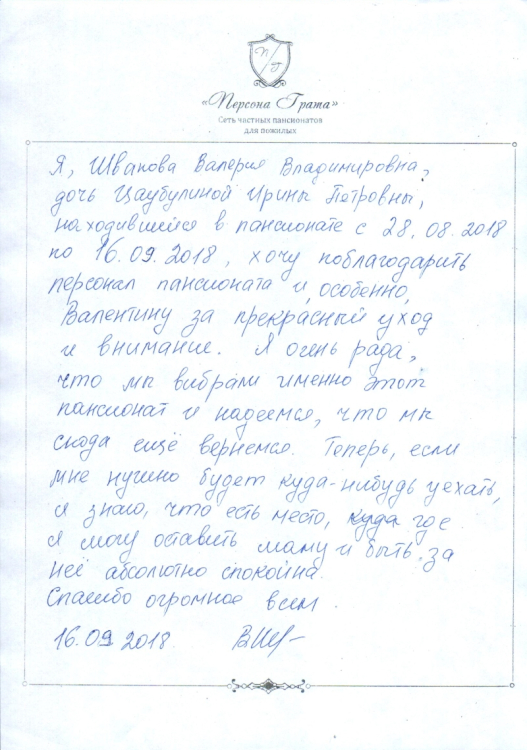 П/Г
«Персона Грата»
Сеть частных пансионатов
для пожилых
Я, Швакова Валерия Владимировна,
дочь Цаубулиной Ирины Петровны,
находившейся в пансионате с 28.08.2018
по 16.09.2018, хочу поблагодарить
персонал пансионата и, особенно,
Валентину за прекрасный уход
и внимание. Я очень рада,
что мы выбрали именно этот
пансионат и надеемся, что мы
сюда ещё вернемся. Теперь, если
мне нужно будет куда-нибудь уехать,
я знаю, что есть место, куда где
я могу оставить маму и быть за
неё абсолютно спокойна.
Спасибо огромное всем.
16.09.2018